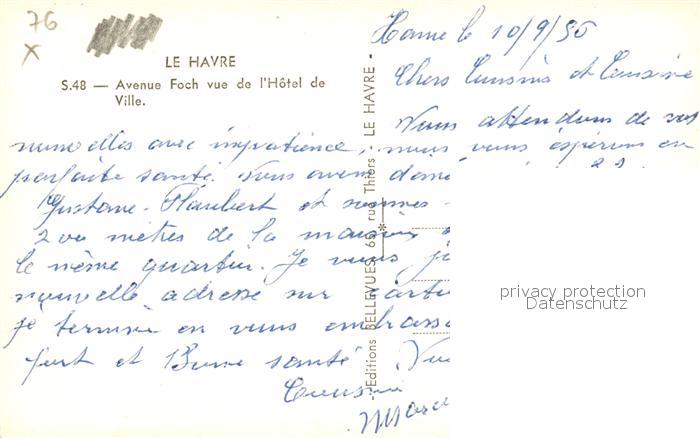 76
x
LE HAVRE
S.48 — Avenue Foch vue de l'Hôtel de
Ville.
Editions BELLEVUES 69, rue Thiers - LE HAVRE -
Havre le 10/9/56
Chers Cousins et Cousine
Nous attendons de vos
nouvelles avec impatience, nous vous espérons en
parfaite santé. Nous avons
Gustave-Flaubert et sommes
200 mètres de la maison
le même quartier. Je vous
nouvelle adresse sur
je termine en vous embrass
fort et Bonne santé
Cousin
privacy protection
Datenschutz